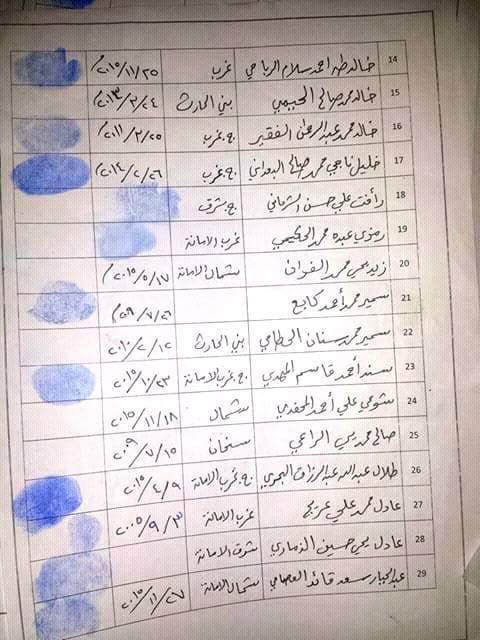 14 خالد طه احمد سلام الرباحي غرب ٢٠١٥/١١/٢٥م
15 خالد محمد صالح الحبيمي بني الحارث ٢٠١٣/٣/٢٤م
16 خالد محمد عبدالرحمن الفقير ج. غرب ٢٠١١/٢/٢٥م
17 خليل ناجي محمد صالح ج. غرب ٢٠١٤/٢/٢٦م
18 رأفت علي حسن ج. شرق
19 رمزي عبده محمد الحكيمي غرب الامانة
20 زيد يحي محمد شمال الامانة ٢٠١٥/٥/١٧م
21 سمير محمد أحمد كابع ٧/٢٦
22 سمير محمد سنان الحطامي بني الحارث ٢٠١٠/٢/١٢
23 سند أحمد قاسم المهدي ج. غرب الامانة ٢٠١٥/١٠/٢٣
24 شوعي علي أحمد المحفدي شمال ٢٠١٥/١١/١٨
25 صالح محمد يحي الراعي سنحان ٢٠٠٩/٧/١٥
26 طلال عبدالله عبدالرزاق ج. غرب الامانة ٢٠١٥/٤/٩
27 عادل محمد علي عريج غرب الامانة ٢٠٠٥/٩/٣
28 عادل يحي حسين الذماري شرق الامانة
29 عبدالجبار سعد قائد العصامي شمال الامانة ٢٠١٥/١١/٢٧